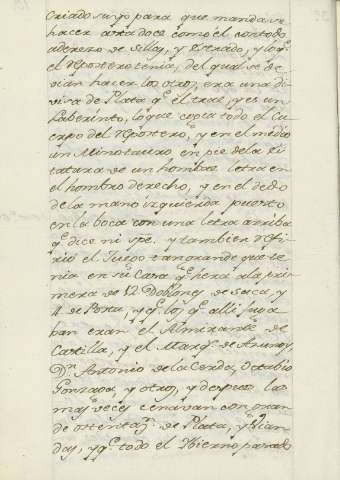 criado suyo para que mandase
hacer otra doce como él con todo
aderezo de Sillas, y Estrado, y lo qᵉ
el repostero tenia, del qual se de
vian hacer los otros, era una di
visa de Plata qᵉ el trae, y es un
Laberinto, lo que copia todo el Cu
erpo del repostero, y en el medio
un Minotauro en pie de la Es
tatura de un hombre letra en
el hombro derecho, y en el dedo
de la mano izquierda puesto
en la boca con una letra arriba
qᵉ dice ni spe. y tambien refi
rió el Juego tan grande que te
nia en su Casa qᵉ hera a la pri
mera de 12 Doblones de saca y
4 de Posta, y qᵉ los qᵉ alli juga
ban eran el Almirante de
Castilla, y el Marqˢ de
Dⁿ Antonio de la Cerda, Octabio
Gonzaga, y otros, y despues las
mas veces cenavan con gran
de ostentazⁿ de Plata, y Vian
das, y qᵉ todo el Hibierno pasado